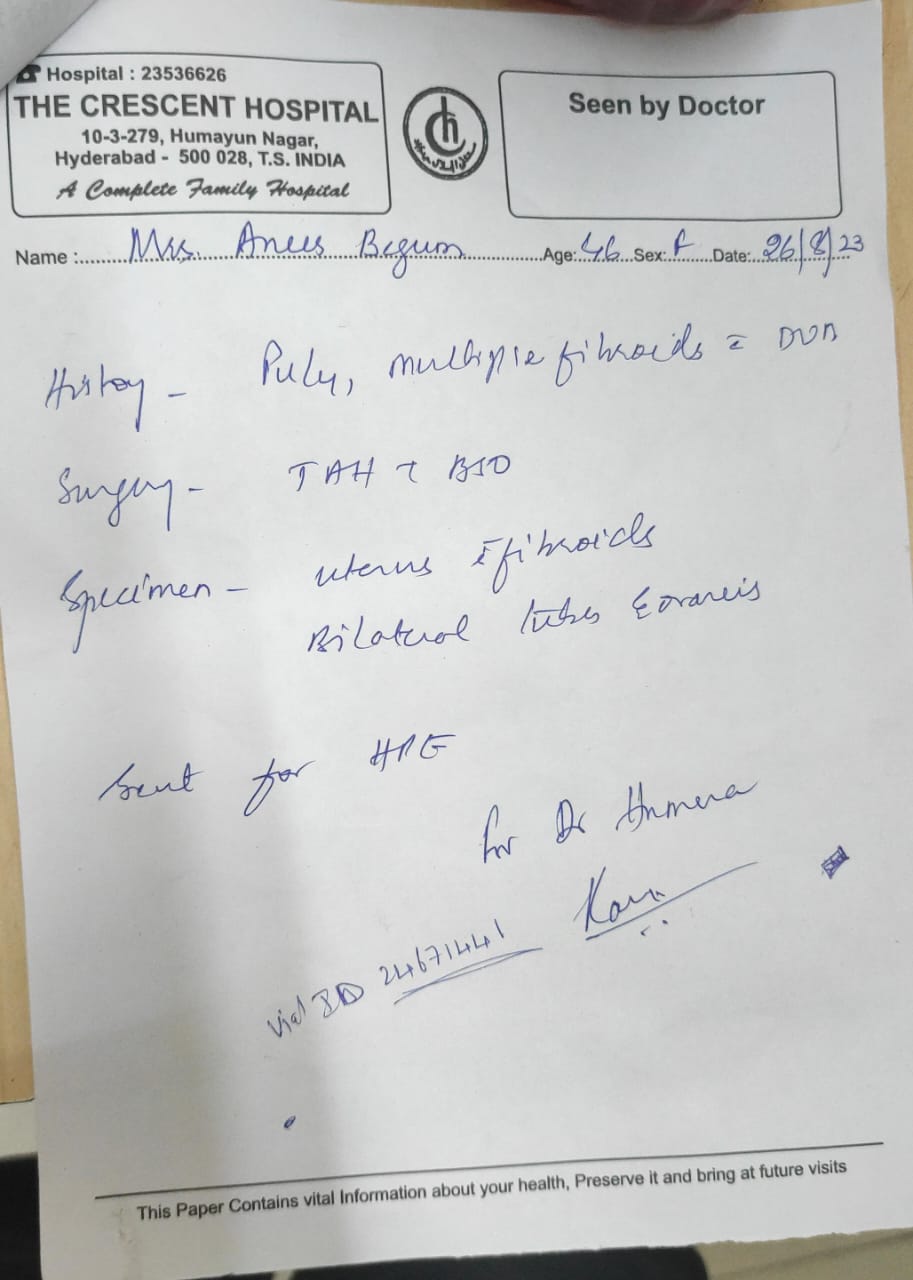 Hospital : 23536626
THE CRESCENT HOSPITAL
10-3-279, Humayun Nagar,
Hyderabad - 500 028, T.S. INDIA
A Complete Family Hospital
Seen by Doctor
Name :........Mrs. Anees Begum........Age:46...Sex:F.....Date:..26/8/23
History - multiple fibroids c̄ DUB
Surgery - TAH c̄ BSO
Specimen - uterus c̄ fibroids
Bilateral tubes & ovaries
Sent for HPE
for Dr Humera
vial ID 24671441
This Paper Contains vital Information about your health, Preserve it and bring at future visits